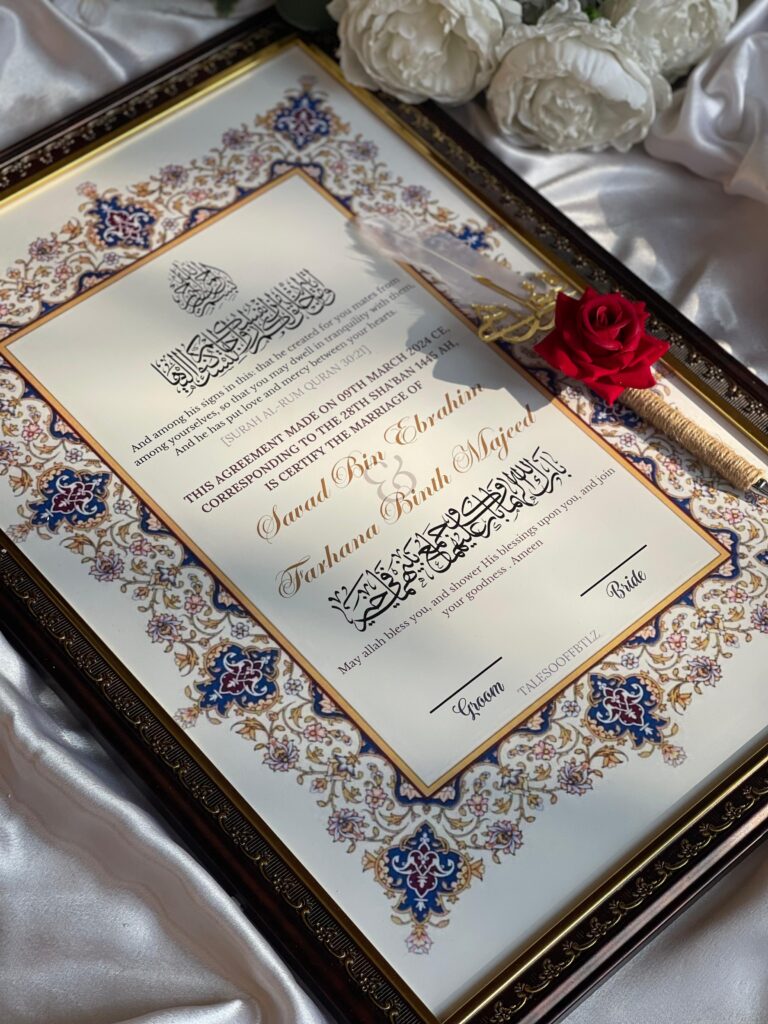 بسم الله الرحمن الرحيم
ومن آياته أن خلق لكم من أنفسكم أزواجا لتسكنوا إليها
And among his signs in this: that he created for you mates from
among yourselves, so that you may dwell in tranquility with them,
And he has put love and mercy between your hearts.
[SURAH AL-RUM QURAN 30:21]
THIS AGREEMENT MADE ON 09TH MARCH 2024 CE,
CORRESPONDING TO THE 28TH SHA'BAN 1445 AH,
IS CERTIFY THE MARRIAGE OF
Savad Bin Ebrahim
&
Farhana Binth Majeed
بارك الله لهما وبارك عليهما وجمع بينهما في خير
May allah bless you, and shower His blessings upon you, and join
your goodness . Ameen
Groom
Bride
TALESOOFFBTLZ